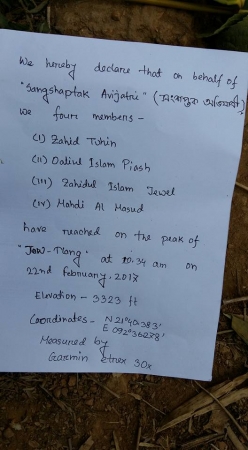 We hereby declare that on behalf of
"Sangshaptak Avijatri" (সংশপ্তক অভিযাত্রী),
we four members -
(i) Zahid Tuhin
(ii) Daliul Islam Piash
(iii) Zahidul Islam Jewel
(iv) Mahdi Al Masud
have reached on the peak of
"Jow-Tlang" at 10:34 am on
22nd February, 2017
Elevation - 3323 ft
Coordinates - N 21°40.383'
E 092°36.238'
Measured by
Garmin etrex 30x